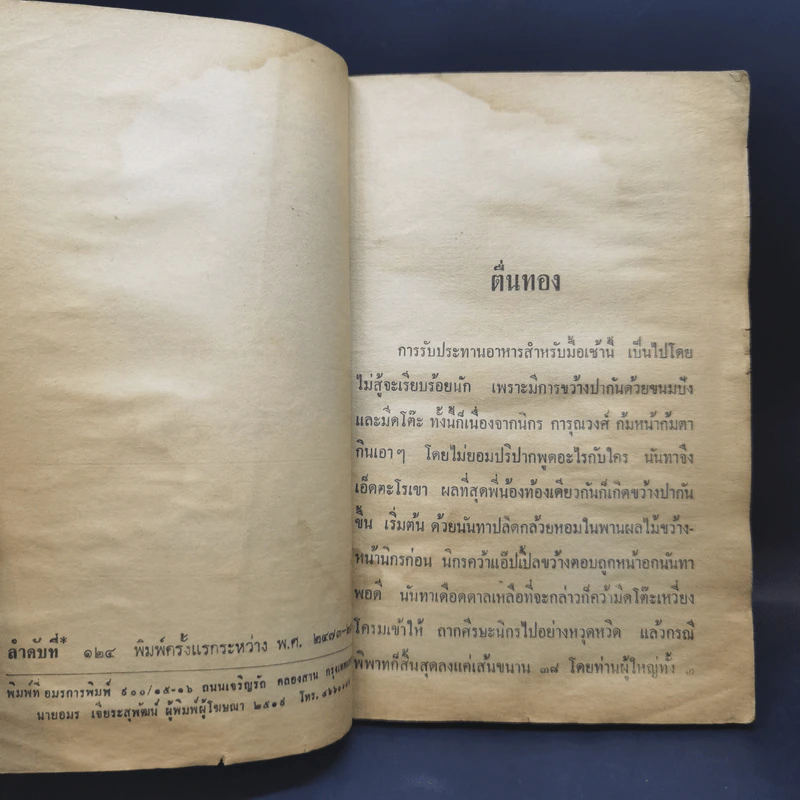 ลำดับที่* ๑๒๔ พิมพ์ครั้งแรกระหว่าง พ.ศ.
พิมพ์ที่ อมรการพิมพ์ ๙๐๐/๑๕-๑๖ ถนนเจริญรัถ คลองสาน
นายอมร เจียระสุพัฒน์ ผู้พิมพ์ผู้โฆษณา ๒๕๑๙ โทร.
ตื่นทอง
การรับประทานอาหารสำหรับมื้อเช้านี้ เป็นไปโดย
ไม่สู้จะเรียบร้อยนัก เพราะมีการขว้างปากันด้วยขนมปัง
และมีดโต๊ะ ทั้งนี้ก็เนื่องจากนิกร การุณวงศ์ ก้มหน้าก้มตา
กินเอาๆ โดยไม่ยอมปริปากพูดอะไรกับใคร นันทาจึง
เอ็ดตะโรเขา ผลที่สุดพี่น้องท้องเดียวกันก็เกิดขว้างปากัน
ขึ้น เริ่มต้น ด้วยนันทาปลิดกล้วยหอมในพานผลไม้ขว้าง-
หน้านิกรก่อน นิกรคว้าแอ๊ปเปิ้ลขว้างตอบถูกหน้าอกนันทา
พอดี นันทาเดือดดาลเหลือที่จะกล่าวก็คว้ามีดโต๊ะเหวี่ยง
โครมเข้าให้ ถากศีรษะนิกรไปอย่างหวุดหวิด แล้วกรณี
พิพาทก็สิ้นสุดลงแค่เส้นขนาน ๓๘ โดยท่านผู้ใหญ่ทั้ง ๓